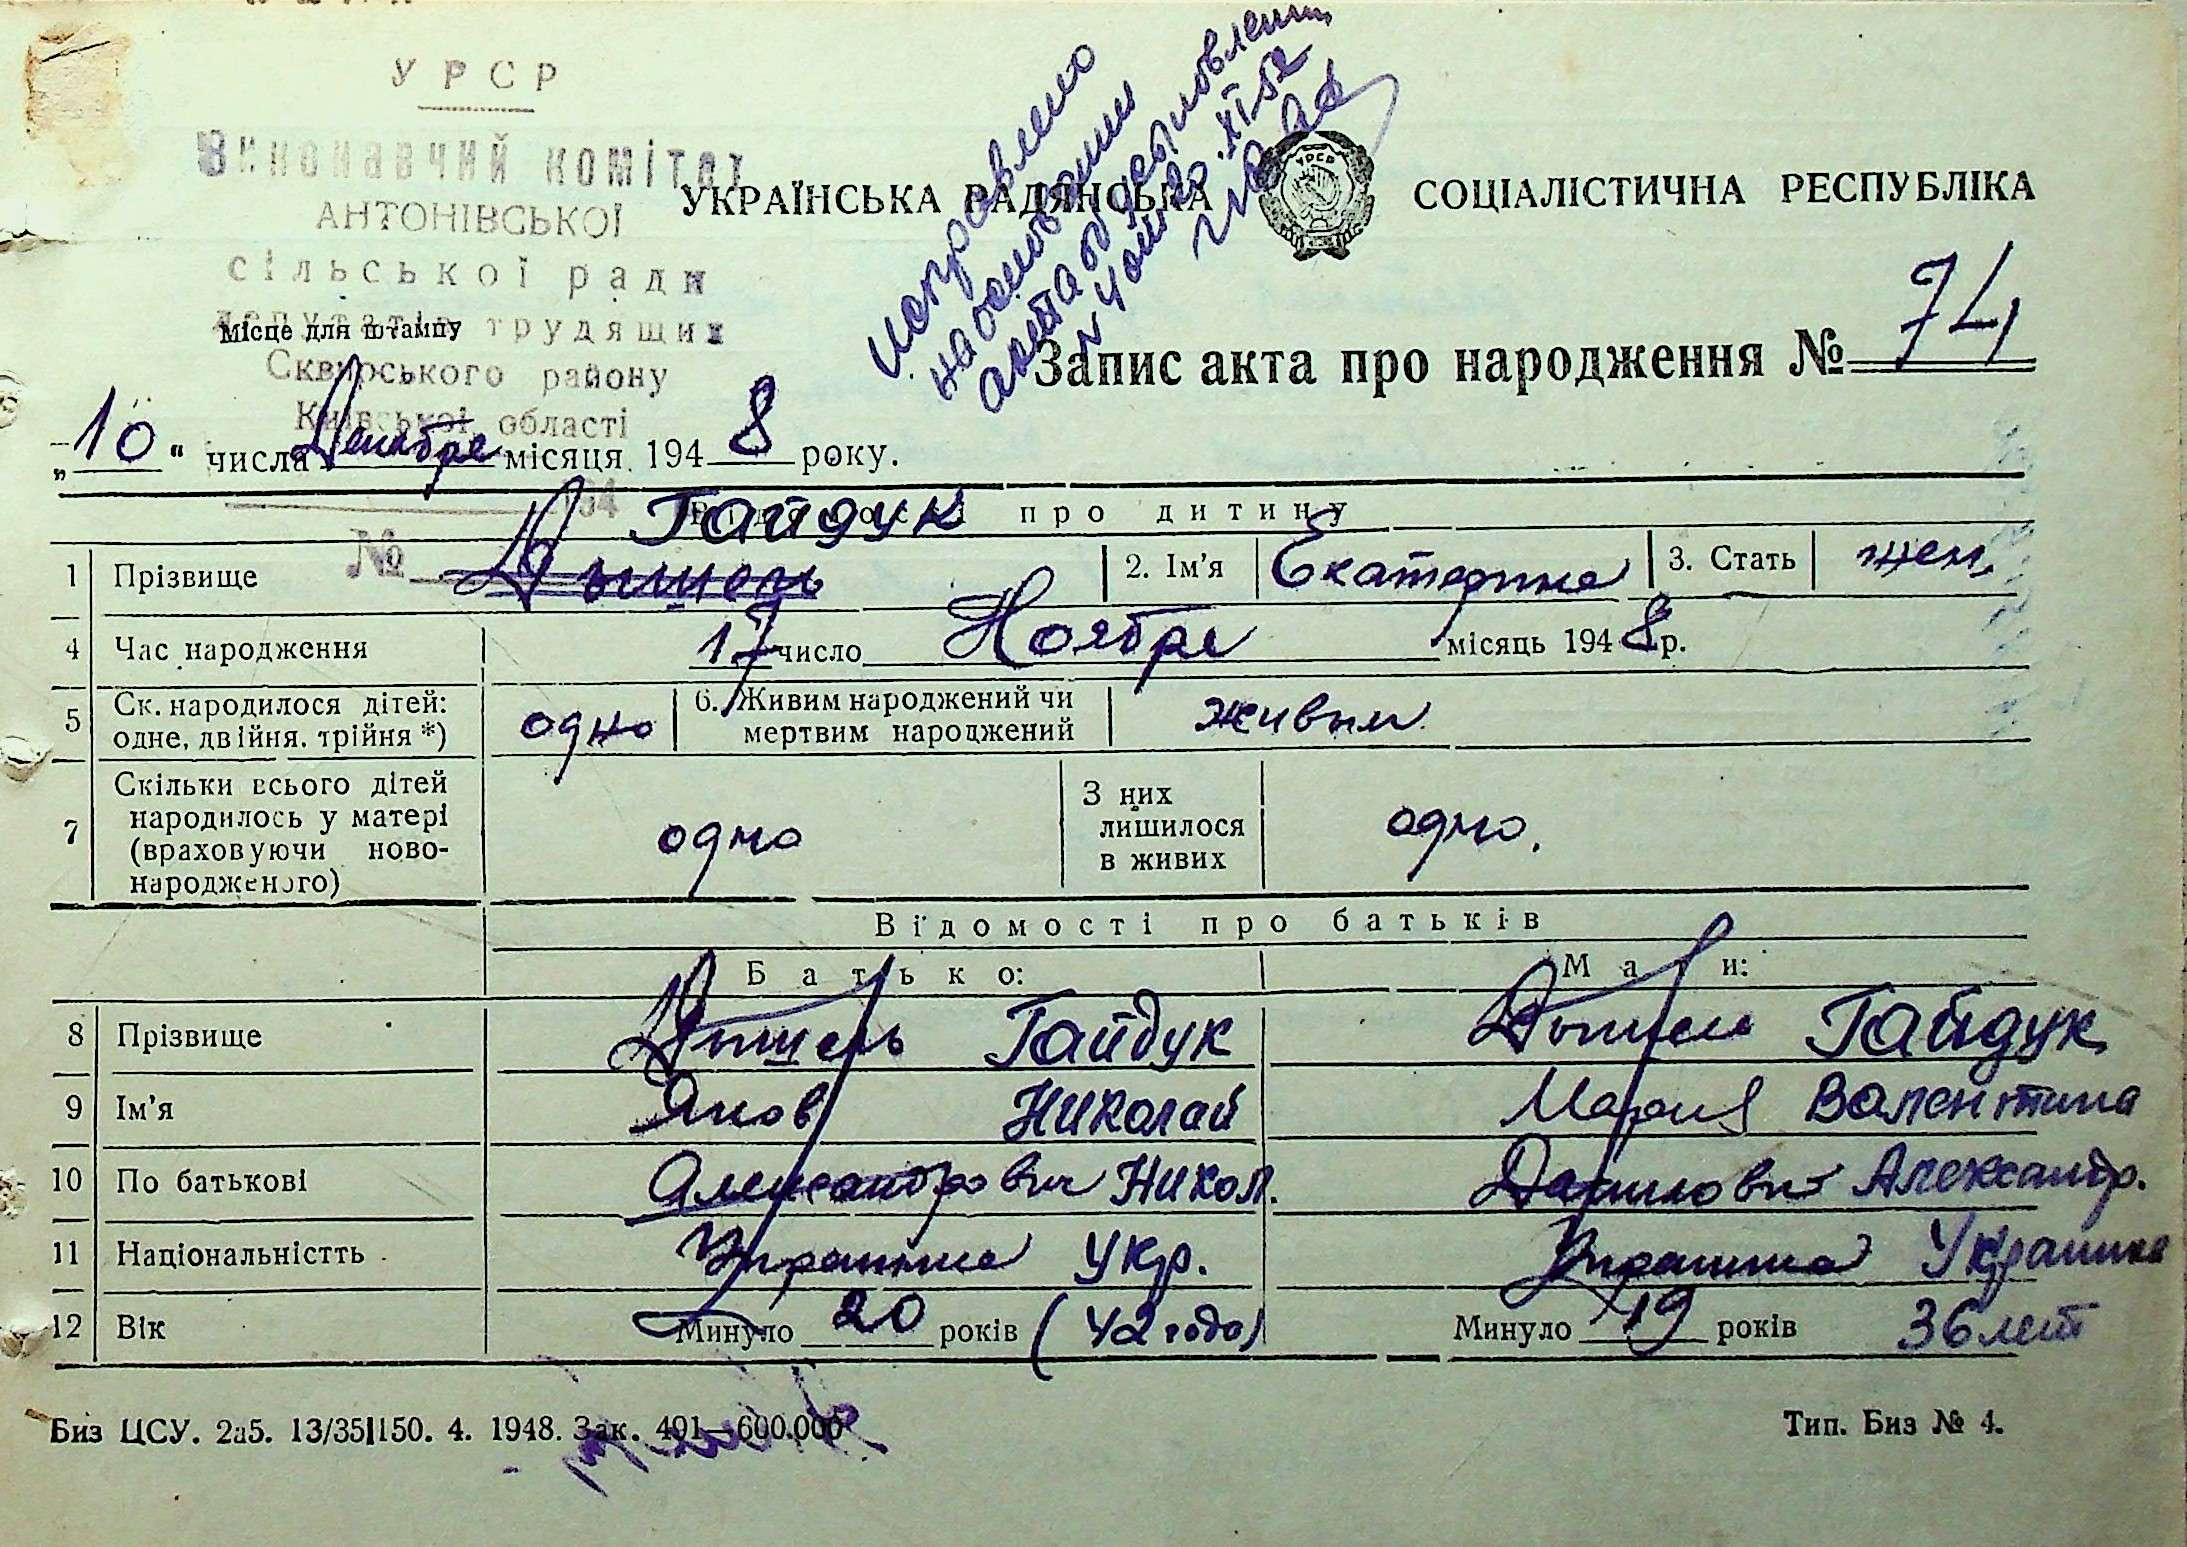 УРСР
Виконавчий комітет
АНТОНІВСЬКОЇ
сільської ради
депутатів трудящих
Сквирського району
Київської області
194
№
Місце для штампу
исправлено
на основании
акта об усыновлении
УКРАЇНСЬКА РАДЯНСЬКА СОЦІАЛІСТИЧНА РЕСПУБЛІКА
УРСР
Запис акта про народження № 74
„10“ числа Декабря місяця 1948 року.
Відомості про дитину
Гайдук
1 Прізвище Дышель 2. Ім'я Екатерина 3. Стать жен.
4 Час народження 17 число Ноября місяць 1948 р.
5 Ск. народилося дітей: одне, двійня, трійня *) одно 6. Живим народжений чи мертвим народжений живым
7 Скільки всього дітей народилось у матері (враховуючи ново-народженого) одно З них лишилося в живих одно.
Відомості про батьків
Батько: Мати:
8 Прізвище Дышель Гайдук Дышель Гайдук
9 Ім'я Яков Николай Мария Валентина
10 По батькові Александрович Никол. Даниловна Александр.
11 Національністть Украинец Укр. Украинка Украинка
12 Вік Минуло 20 років (42 года) Минуло 19 років 36 лет
Биз ЦСУ. 2а5. 13/35|150. 4. 1948. Зак. 491—600.000
Тип. Биз № 4.